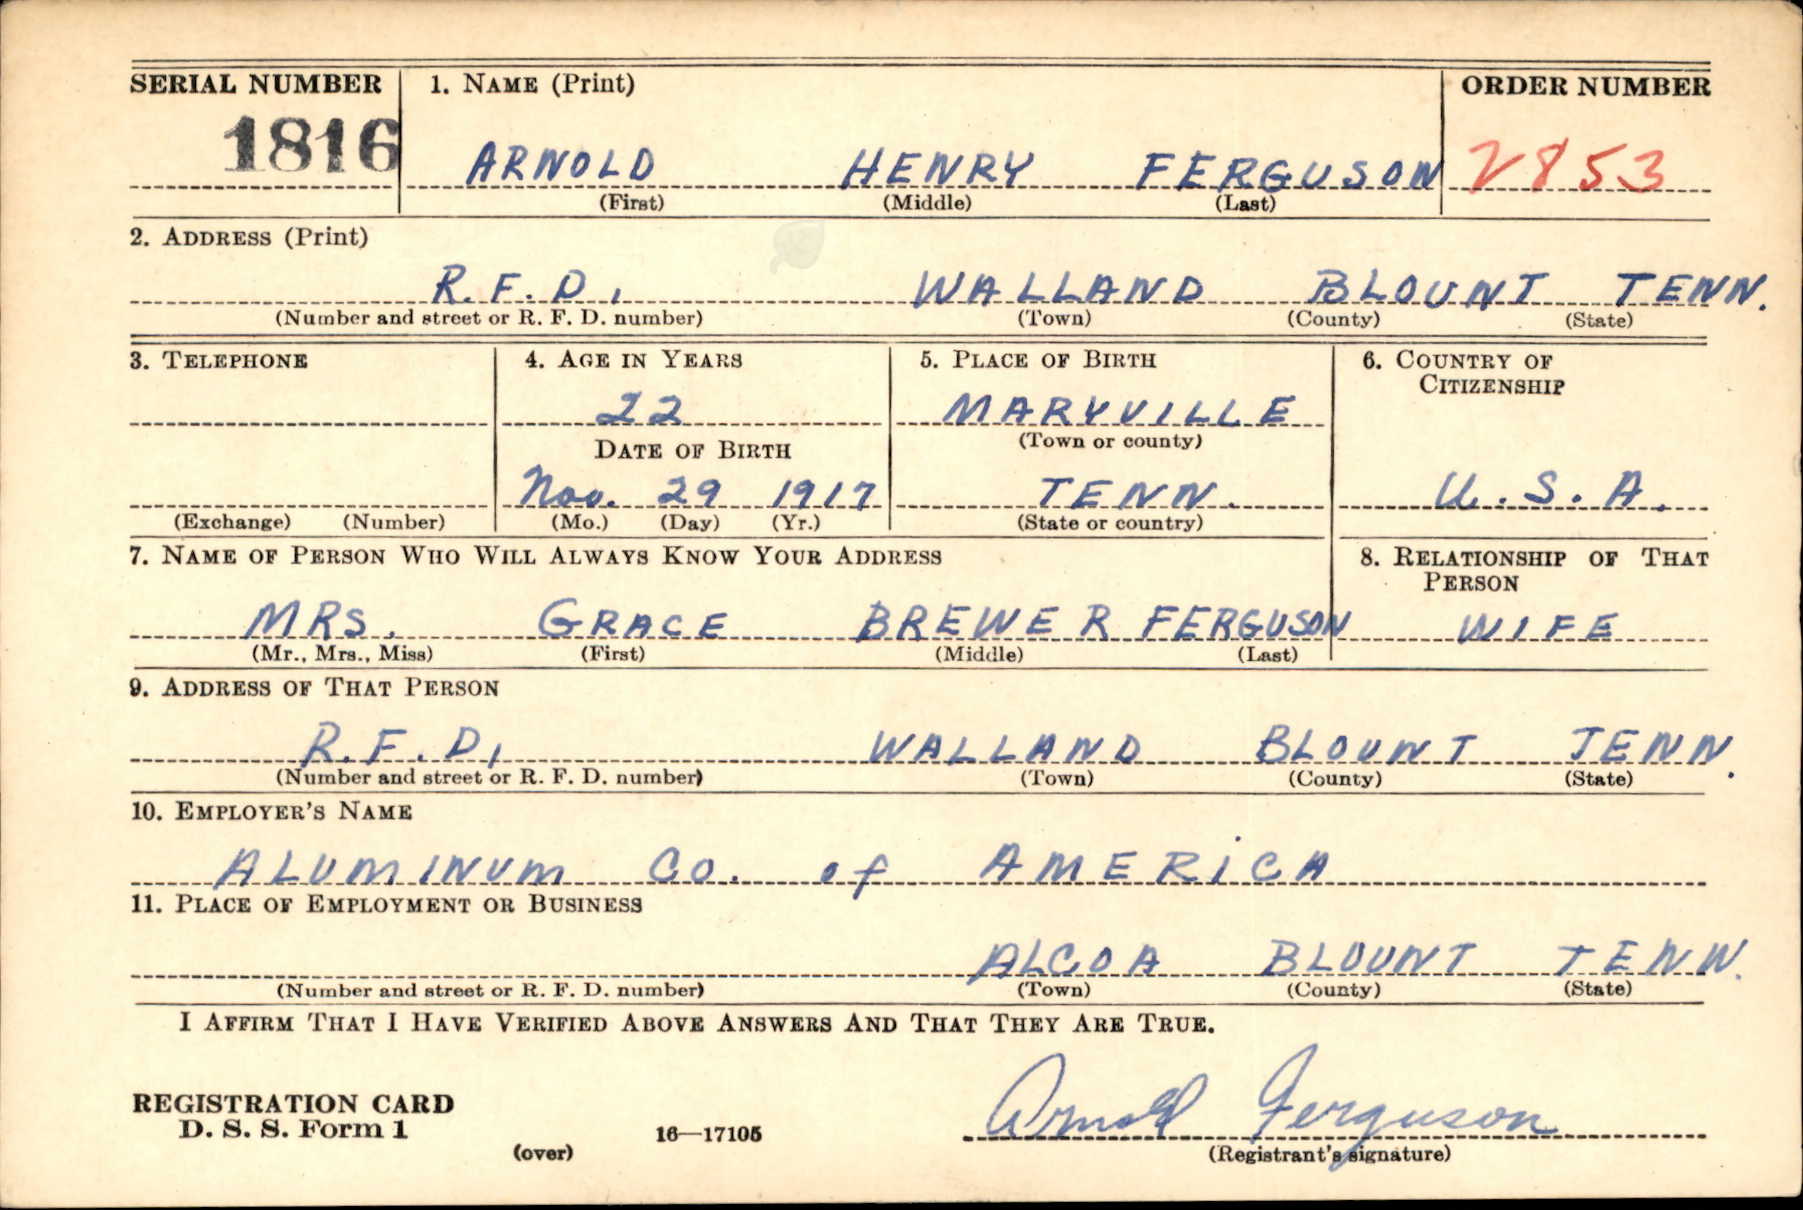 SERIAL NUMBER 1. NAME (Print) ORDER NUMBER
1816 ARNOLD HENRY FERGUSON 2853
(First) (Middle) (Last)
2. ADDRESS (Print)
R.F.D. WALLAND BLOUNT TENN.
(Number and street or R. F. D. number) (Town) (County) (State)
3. TELEPHONE 4. AGE IN YEARS 5. PLACE OF BIRTH 6. COUNTRY OF
CITIZENSHIP
22 MARYVILLE
DATE OF BIRTH (Town or county)
Nov. 29 1917 TENN. U.S.A.
(Exchange) (Number) (Mo.) (Day) (Yr.) (State or country)
7. NAME OF PERSON WHO WILL ALWAYS KNOW YOUR ADDRESS 8. RELATIONSHIP OF THAT
PERSON
MRS. GRACE BREWER FERGUSON WIFE
(Mr., Mrs., Miss) (First) (Middle) (Last)
9. ADDRESS OF THAT PERSON
R.F.D. WALLAND BLOUNT TENN.
(Number and street or R. F. D. number) (Town) (County) (State)
10. EMPLOYER'S NAME
ALUMINUM CO. of AMERICA
11. PLACE OF EMPLOYMENT OR BUSINESS
ALCOA BLOUNT TENN.
(Number and street or R. F. D. number) (Town) (County) (State)
I AFFIRM THAT I HAVE VERIFIED ABOVE ANSWERS AND THAT THEY ARE TRUE.
REGISTRATION CARD
D. S. S. Form 1 16—17105 Arnold Ferguson
(over) (Registrant's signature)